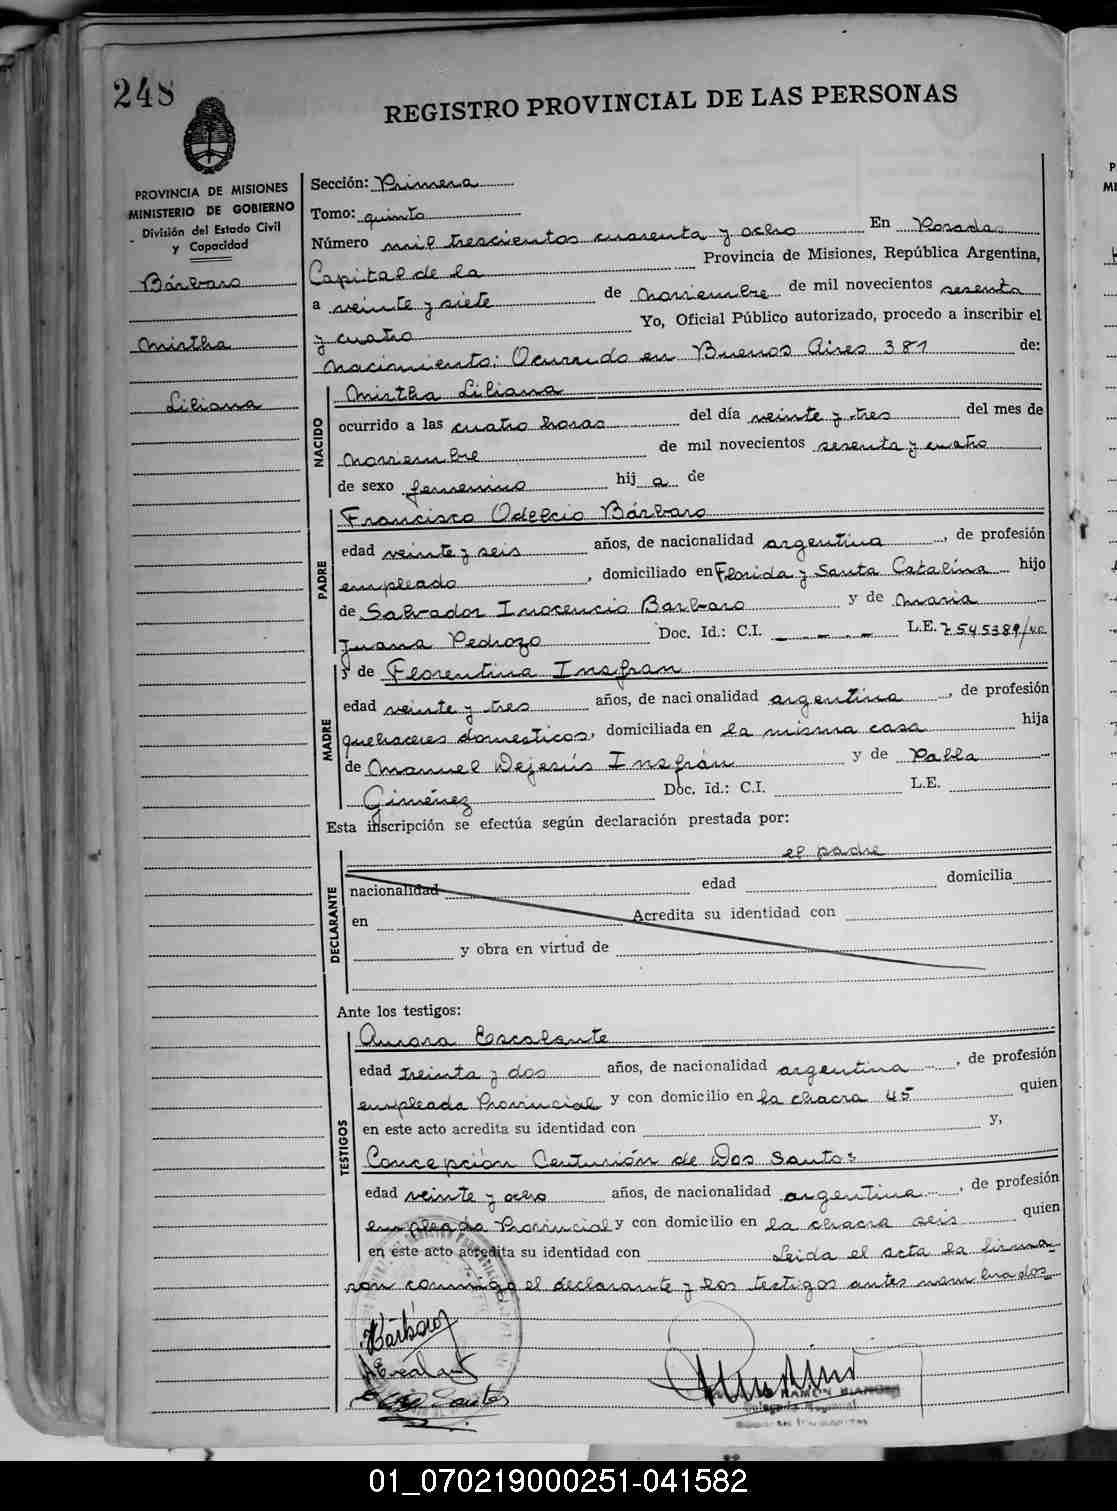 248
REGISTRO PROVINCIAL DE LAS PERSONAS
PROVINCIA DE MISIONES
MINISTERIO DE GOBIERNO
División del Estado Civil
y Capacidad
Bárbaro
Mirtha
Liliana
Sección: Primera
Tomo: quinto
Número mil trescientos cuarenta y ocho En Posadas
Capital de la Provincia de Misiones, República Argentina,
a veinte y siete de noviembre de mil novecientos sesenta
y cuatro Yo, Oficial Público autorizado, procedo a inscribir el
nacimiento: Ocurrido en Buenos Aires 381 de:
NACIDO
Mirtha Liliana
ocurrido a las cuatro horas del día veinte y tres del mes de
noviembre de mil novecientos sesenta y cuatro
de sexo femenino hij a de
PADRE
Francisco Odelcio Bárbaro
edad veinte y seis años, de nacionalidad argentina, de profesión
empleado, domiciliado en Florida y Santa Catalina hijo
de Salvador Inocencio Barbaro y de Maria
Juana Pedrozo Doc. Id.: C.I. - - - - L.E. 7545389
MADRE
y de Florentina Insfran
edad veinte y tres años, de nacionalidad argentina, de profesión
quehaceres domesticos, domiciliada en la misma casa hija
de Manuel Dejesús Insfrán y de Pabla
Giménez Doc. Id.: C.I. L.E.
Esta inscripción se efectúa según declaración prestada por:
DECLARANTE
el padre
nacionalidad edad domicilia
en Acredita su identidad con
y obra en virtud de
Ante los testigos:
TESTIGOS
Aurora Escalante
edad treinta y dos años, de nacionalidad argentina, de profesión
empleada Provincial y con domicilio en la chacra 45 quien
en este acto acredita su identidad con y,
Concepción Centurión de Dos Santos
edad veinte y ocho años, de nacionalidad argentina, de profesión
empleada Provincial y con domicilio en la chacra seis quien
en este acto acredita su identidad con Leida el acta la firma-
ron conmigo el declarante y los testigos antes nombrados
Bárbaro
AEscalante
Santos
01_070219000251-041582